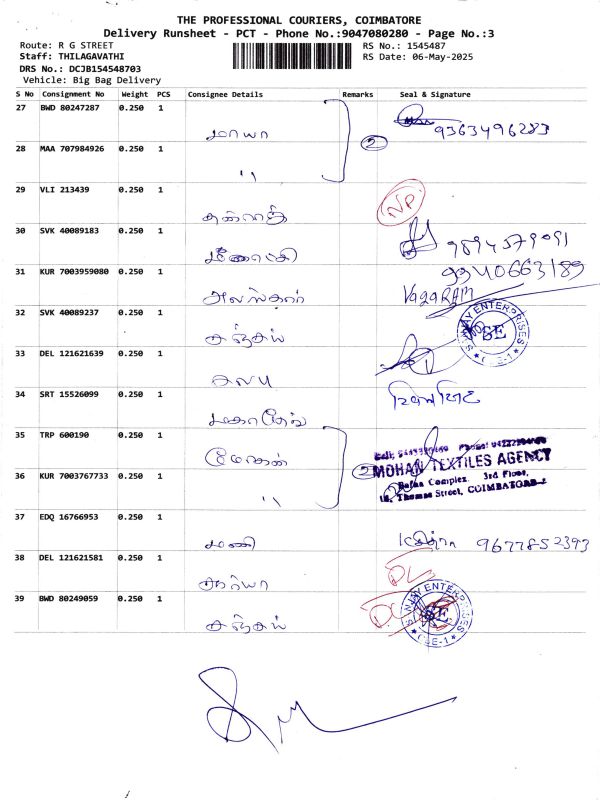 THE PROFESSIONAL COURIERS, COIMBATORE
Delivery Runsheet - PCT - Phone No.:9047080280 - Page No.:3
Route: R G STREET
RS No.: 1545487
Staff: THILAGAVATHI
RS Date: 06-May-2025
DRS No.: DCJB154548703
Vehicle: Big Bag Delivery
S No Consignment No Weight PCS Consignee Details Remarks Seal & Signature
27 BWD 80247287 0.250 1
மாயா 2 9363496283
28 MAA 707984926 0.250 1
"
29 VLI 213439 0.250 1
NP
30 SVK 40089183 0.250 1
மீனாட்சி
31 KUR 7003959080 0.250 1
9940663189
VagaRAM
32 SVK 40089237 0.250 1
சஞ்சய்
SANJAY ENTERPRISES
SE
CBE-1
33 DEL 121621639 0.250 1
34 SRT 15526099 0.250 1
மகாதேவ்
35 TRP 600190 0.250 1
மோகன் 2
MOHAN TEXTILES AGENCY
Complex 3rd Floor,
Thomas Street, COIMBATORE-1
36 KUR 7003767733 0.250 1
"
37 EDQ 16766953 0.250 1
மணி 9677852393
38 DEL 121621581 0.250 1
DL
39 BWD 80249059 0.250 1
சஞ்சய் DL
SANJAY ENTERPRISES
SE
CBE-1